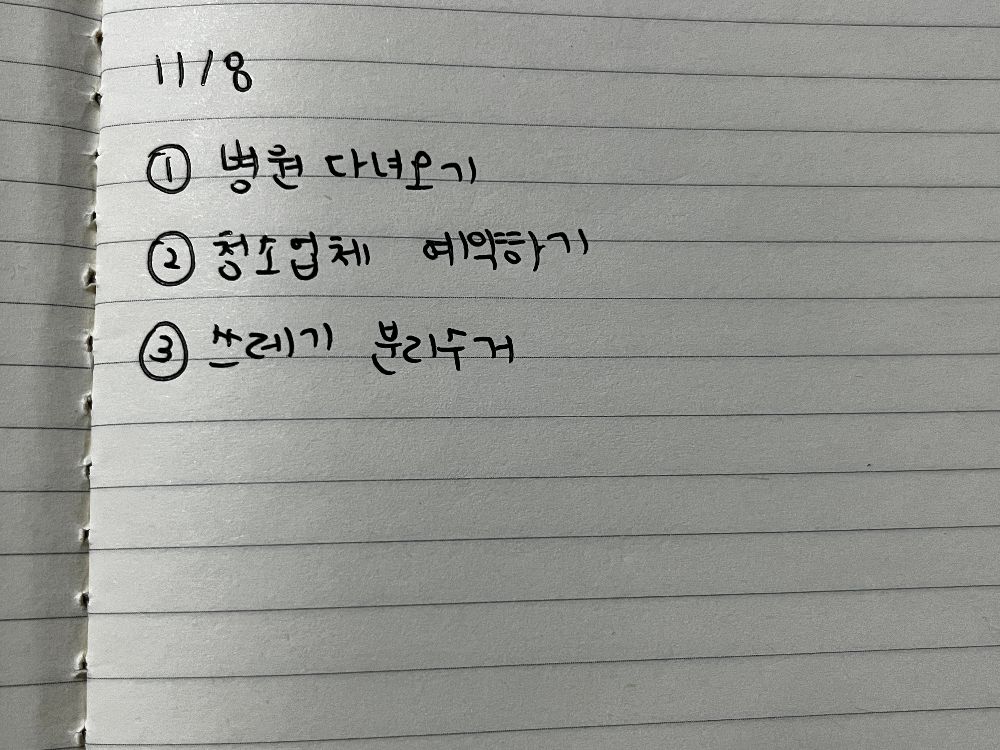 11/8
① 병원 다녀오기
② 청소업체 예약하기
③ 쓰레기 분리수거